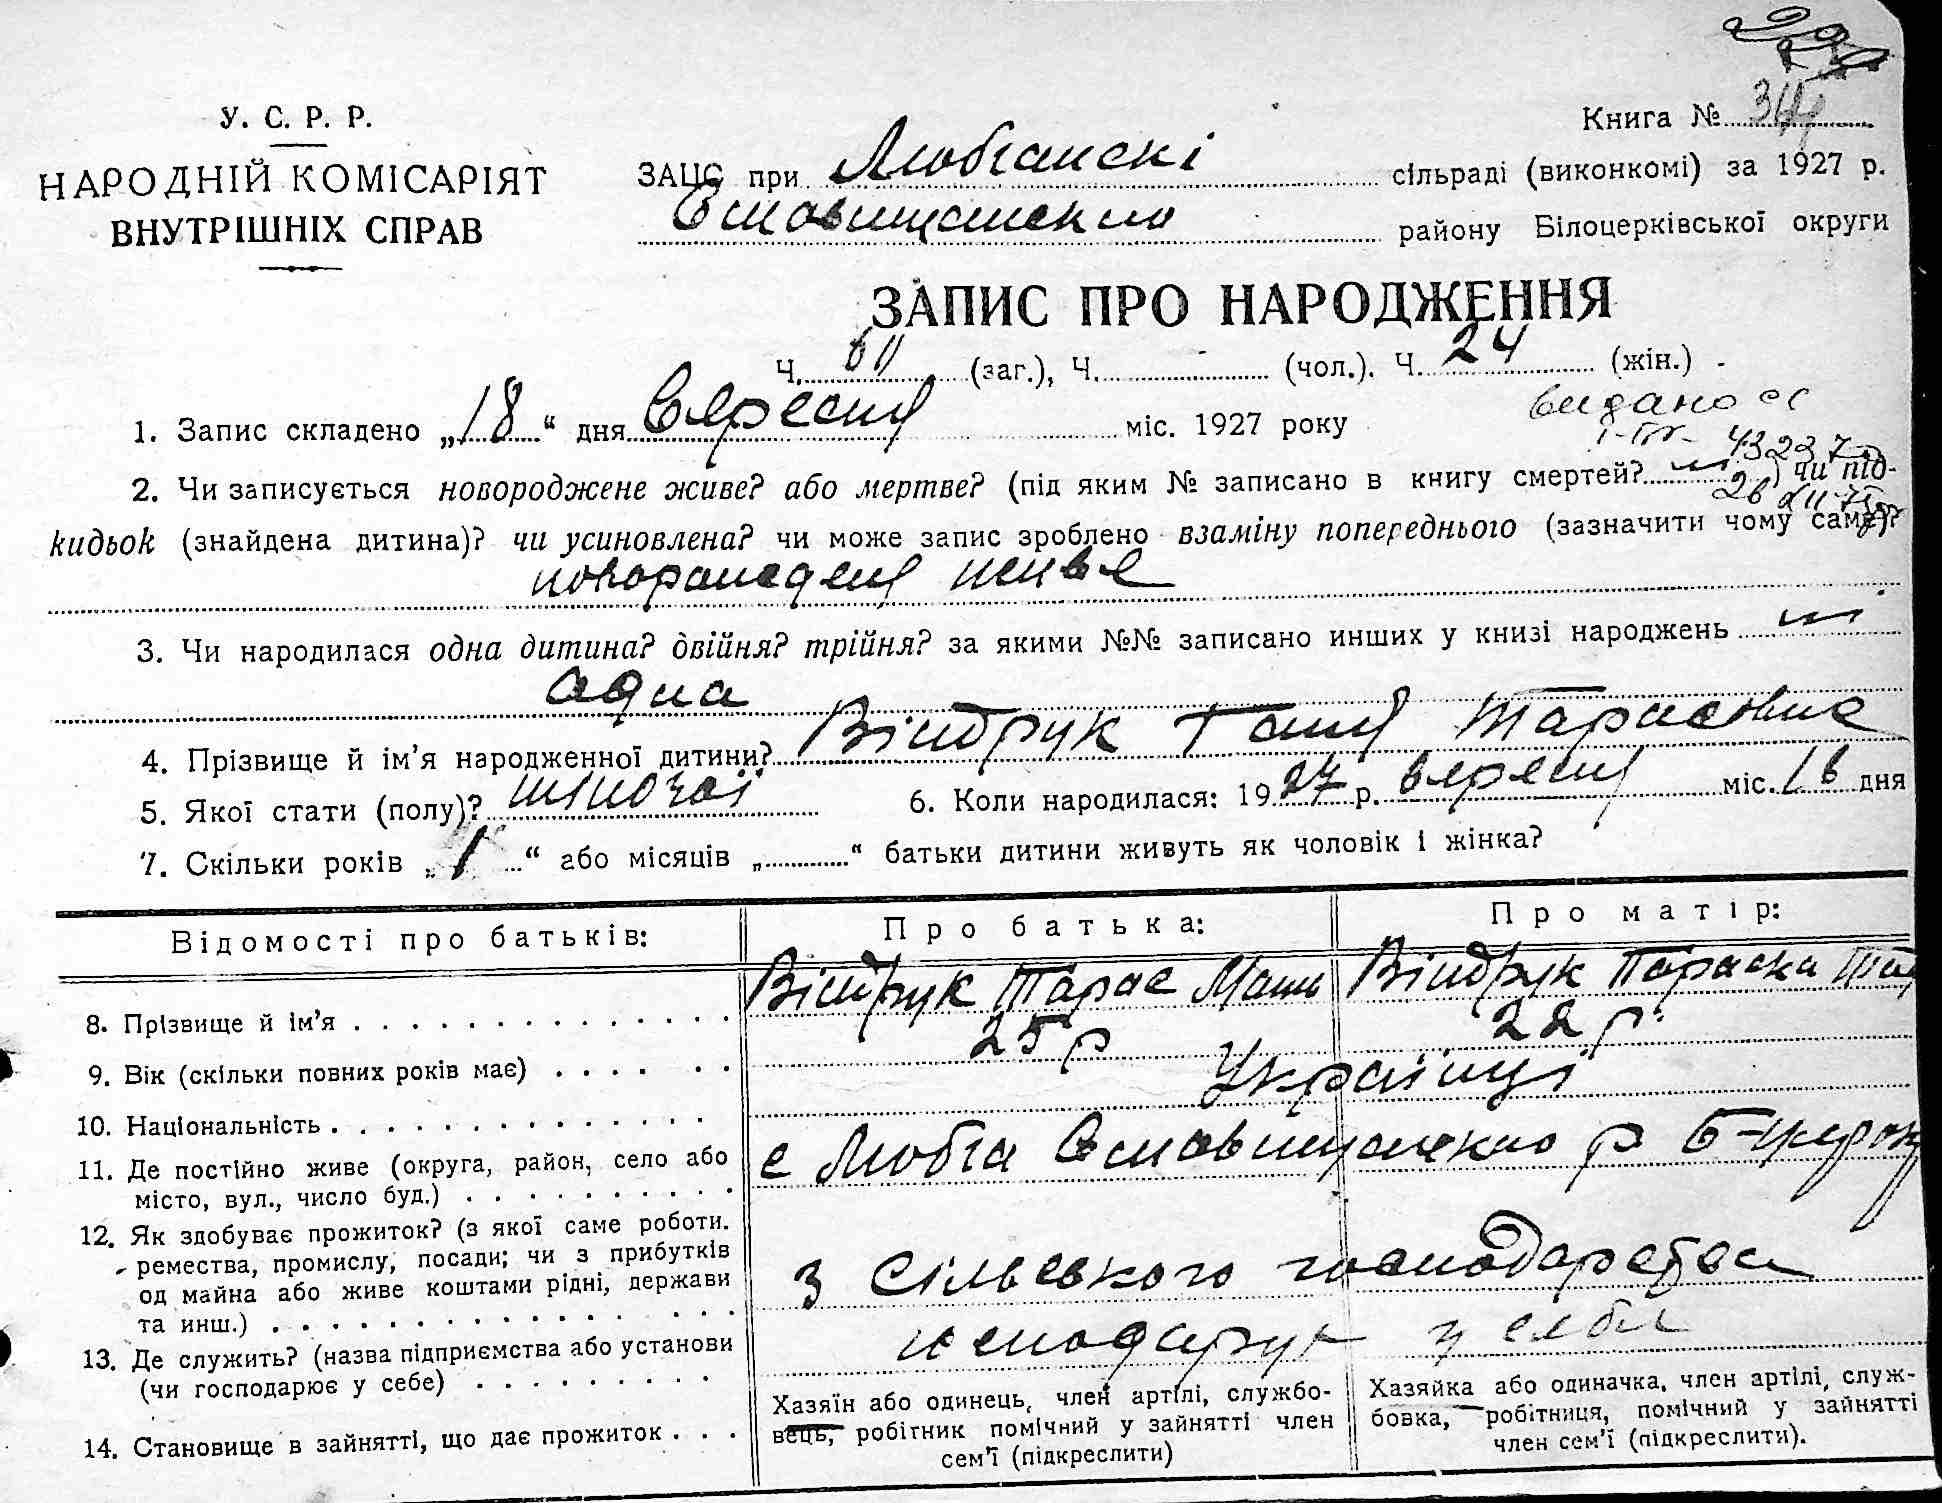 У. С. Р. Р.
НАРОДНІЙ КОМІСАРІЯТ
ВНУТРІШНІХ СПРАВ
Книга №
ЗАЦС при сільраді (виконкомі) за 1927 р.
району Білоцерківської округи
ЗАПИС ПРО НАРОДЖЕННЯ
Ч. (заг.), Ч. (чол.). Ч. 24 (жін.)
видано
1. Запис складено „18“ дня вересня міс. 1927 року
2. Чи записується новороджене живе? або мертве? (під яким № записано в книгу смертей? ) чи під-
кидьок (знайдена дитина)? чи усиновлена? чи може запис зроблено взаміну попереднього (зазначити чому саме)?
3. Чи народилася одна дитина? двійня? трійня? за якими №№ записано инших у книзі народжень
одна
4. Прізвище й ім’я народженної дитини? Віндрук Ганя Тарасовна
5. Якої стати (полу)? 6. Коли народилася: 1927 р. вересня міс. 16 дня
7. Скільки років „1“ або місяців „ “ батьки дитини живуть як чоловік і жінка?
Відомості про батьків: Про батька: Про матір:
8. Прізвище й ім’я Віндрук Тарас Віндрук Параска
9. Вік (скільки повних років має) 25 р 22 р.
10. Національність Українці
11. Де постійно живе (округа, район, село або
місто, вул., число буд.) с
12. Як здобуває прожиток? (з якої саме роботи.
ремества, промислу, посади; чи з прибутків
од майна або живе коштами рідні, держави
та инш.) з сільського господарства
13. Де служить? (назва підприємства або установи
(чи господарює у себе) у себе
14. Становище в зайнятті, що дає прожиток
Хазяїн або одинець, член артілі, службо-
вець, робітник помічний у зайнятті член
сем’ї (підкреслити)
Хазяйка або одиначка, член артілі, служ-
бовка, робітниця, помічний у зайнятті
член сем’ї (підкреслити).